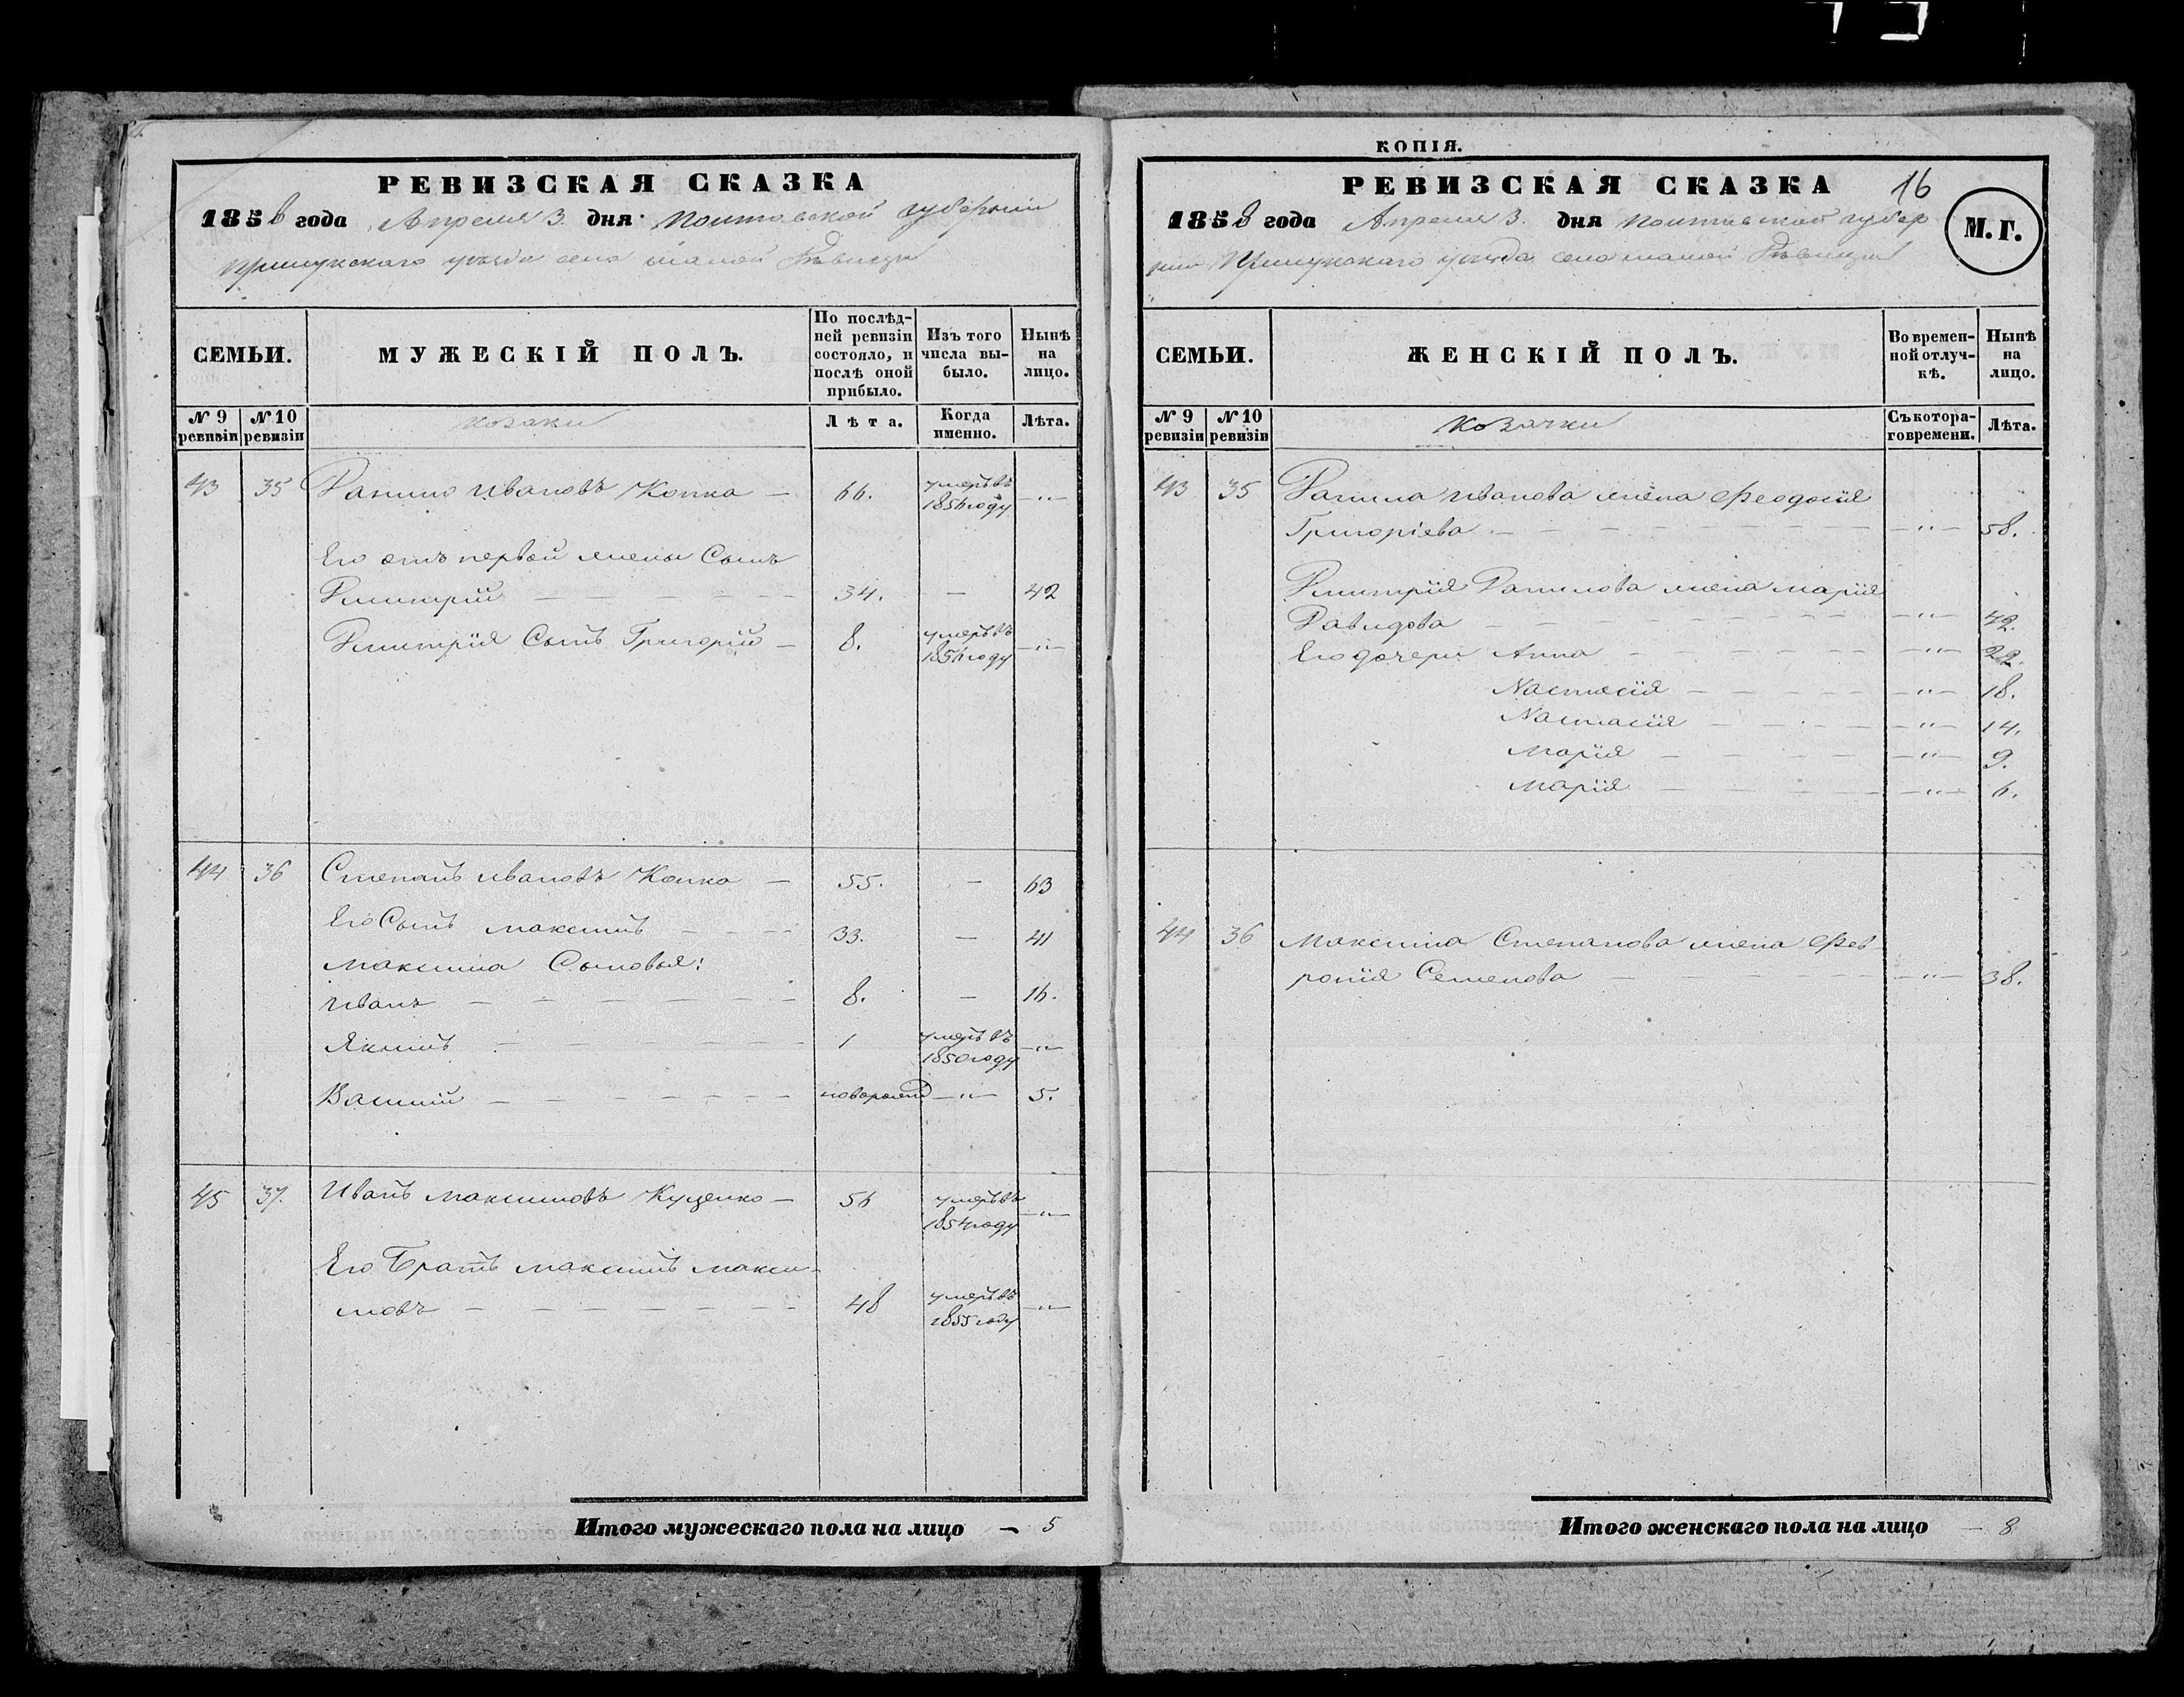 РЕВИЗСКАЯ СКАЗКА
1858 года Апреля 3. дня Полтавской губернии
Прилукскаго уѣзда села малой Дѣвицы
СЕМЬИ.
МУЖЕСКІЙ ПОЛЪ.
По послѣд-
ней ревизіи
состояло, и
послѣ оной
прибыло.
Изъ того
числа вы-
было.
Нынѣ
на
лицо.
№ 9
ревизіи
№ 10
ревизіи
козаки
Лѣта.
Когда
именно.
Лѣта.
43 35 Данило Ивановъ Копка — 66. умеръ въ —"—
1856 году
Его отъ первой жены Сынъ
Дмитрій — — — — — 34. — 42
Дмитрія Сынъ Григорій — 8. умеръ въ —"—
1856 году
44 36 Степанъ Ивановъ Копка — 55. — 63
Его Сынъ максимъ — — — 33. — 41
максима Сыновья:
Иванъ — — — — — — 8. — 16.
Якимъ — — — — — — 1 умеръ въ —"—
1850 году
Василій — — — — — — новорожд —"— 5.
45 37. Иванъ максимовъ Куценко — 56 умеръ въ —"—
1854 году
Его Братъ максимъ макси-
мовъ — — — — — — 48 умеръ въ —"—
1855 году
Итого мужескаго пола на лицо — 5
КОПІЯ.
РЕВИЗСКАЯ СКАЗКА 16
1858 года Апреля 3. дня Полтавской губер
ніи Прилукскаго уѣзда села малой Дѣвицы
М. Г.
СЕМЬИ.
ЖЕНСКІЙ ПОЛЪ.
Во времен-
ной отлуч-
кѣ.
Нынѣ
на
лицо.
№ 9
ревизіи
№ 10
ревизіи
козачки
Съ котора-
го времени.
Лѣта.
43 35 Данила Иванова жена Феодосія
Григоріева — — — — — —"— 58.
Дмитрія Данилова жена марія
Давидова — — — — — —"— 42.
Его дочери Анна — — — — —"— 22.
Настасія — — — — —"— 18.
Настасія — — — — —"— 14.
Марія — — — — —"— 9.
Марія — — — — —"— 6.
44 36 Максима Степанова жена Фев
ронія Семенова — — — — —"— 38.
Итого женскаго пола на лицо — 8